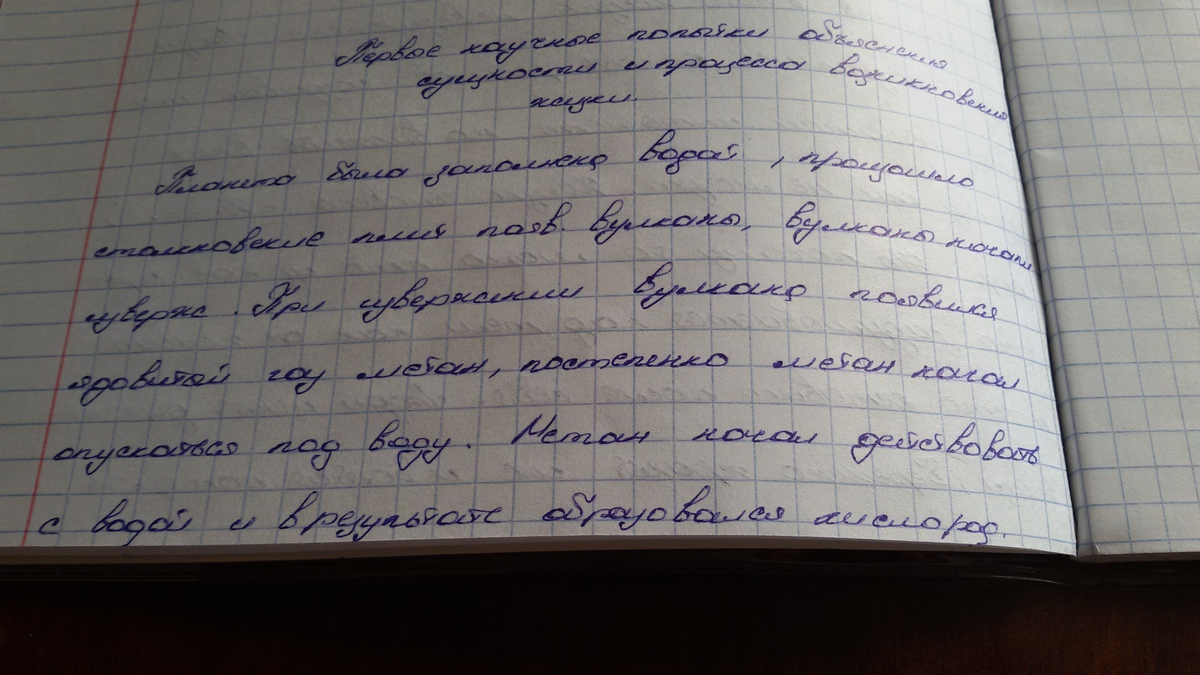 Первые научные попытки объяснения
сущности и процесса возникновения
жизни.
Планета была заполнена водой, произошло
столкновение плит появ. вулканы, вулканы начали
изверж. При извержении вулкана появился
ядовитый газ метан, постепенно метан начал
опускаться под воду. Метан начал действовать
с водой и в результате образовался кислород.